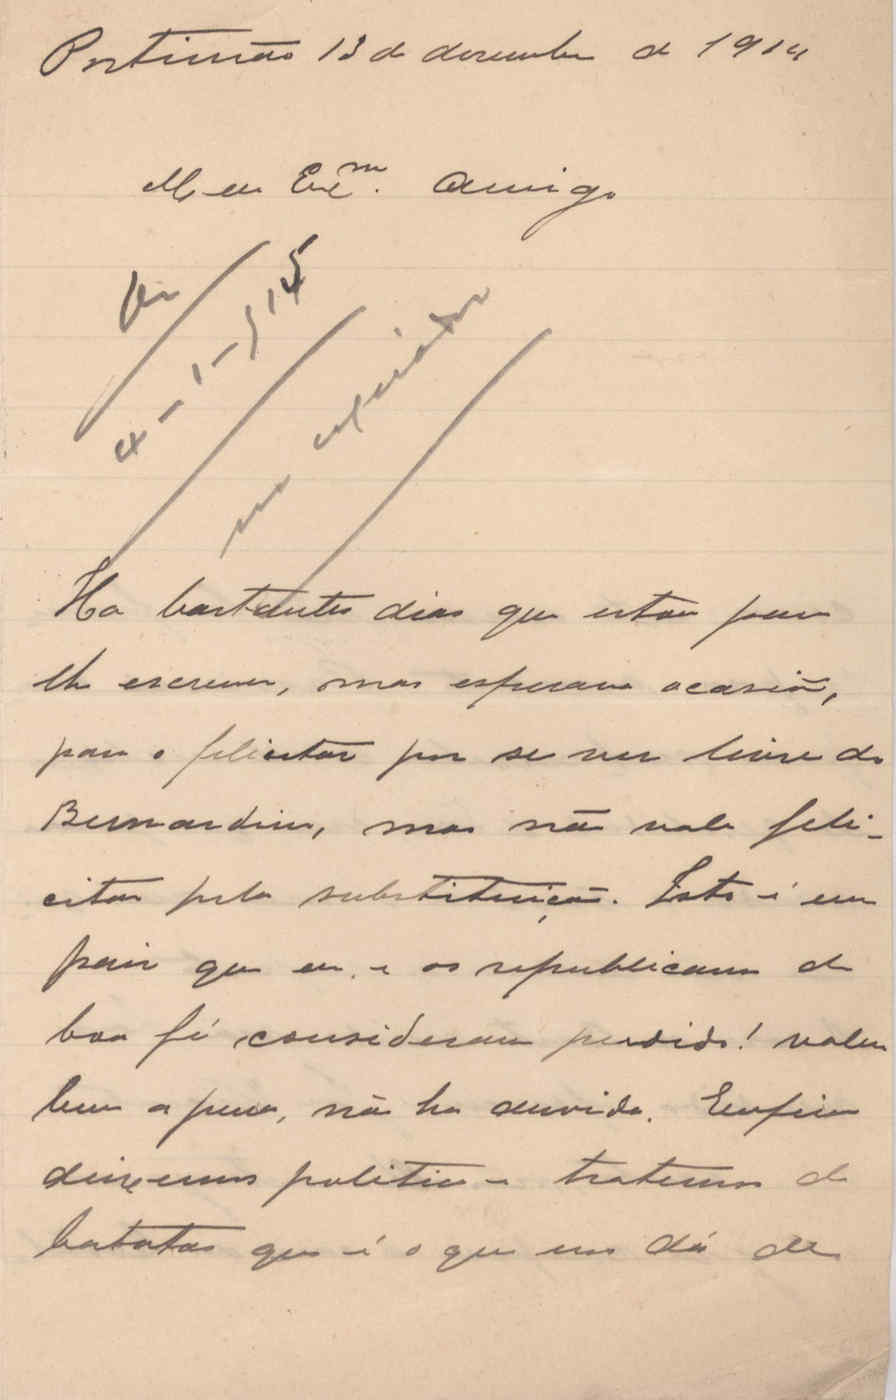 Portimão 13 de dezembro de 1914
Meu Exm. Amigo
4-1-915
Ha bastantes dias que estou para
lhe escrever, mas esperava ocasião,
para o felicitar por se ver livre do
Bernardino, mas não vale feli-
citar pela substituição. Isto é um
paiz que eu e os republicanos de
boa fé consideram perdido! valeu
bem a pena, não ha duvida. Emfim
deixemos politica e tratemos de
batatas que é o que nos dá de